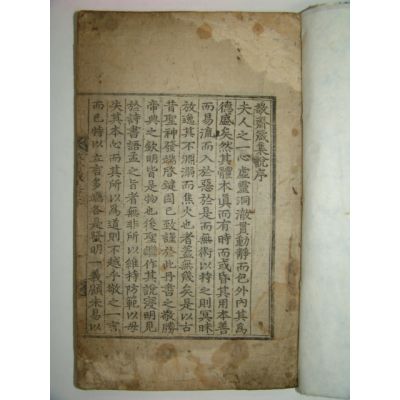 敬齋箴集說序
夫人之一心虛靈洞澈貫動靜而包外內其爲
德盛矣然其體本眞而有時而或昏其用本善
而易流而入於惡於是而無術以持之則冥昧
放逸其不淵溺而焦火者也者蓋無幾矣是以古
昔聖神發端啓鍵固已致謹於此丹書之敬勝
帝典之欽明皆是物也後聖繼作其說寖明見
於詩書語孟之旨者無非所以維持防範以毋
失其本心而其所以爲道則不越乎敬之一言
而已特以立言多端各是發明一義顧未易以